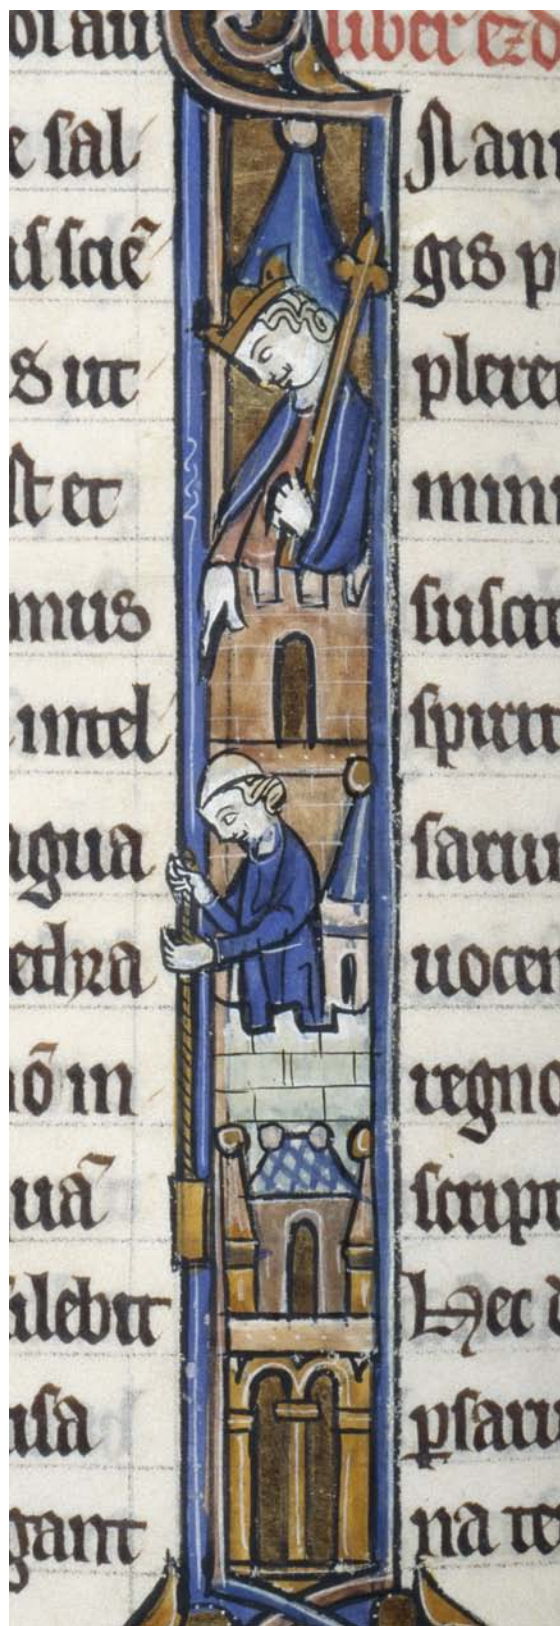 e sal
s sciē
s ut
st et
mus
intel
gua
ethra
ō in
uā
ilebit
usa
gant
liber ezd
N ann
gis p
plere
mini
suscit
spirit
saru
uocem
regno
script
Hec d
ꝑsaru
na te